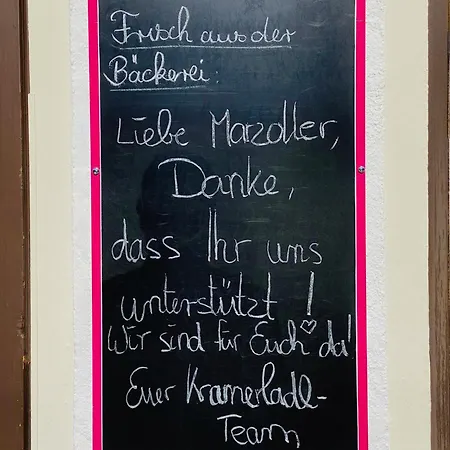 Frisch aus der
Bäckerei:
Liebe Marzoller,
Danke,
dass Ihr uns
unterstützt!
Wir sind für Euch♡da!
Euer Kramerladl-
Team